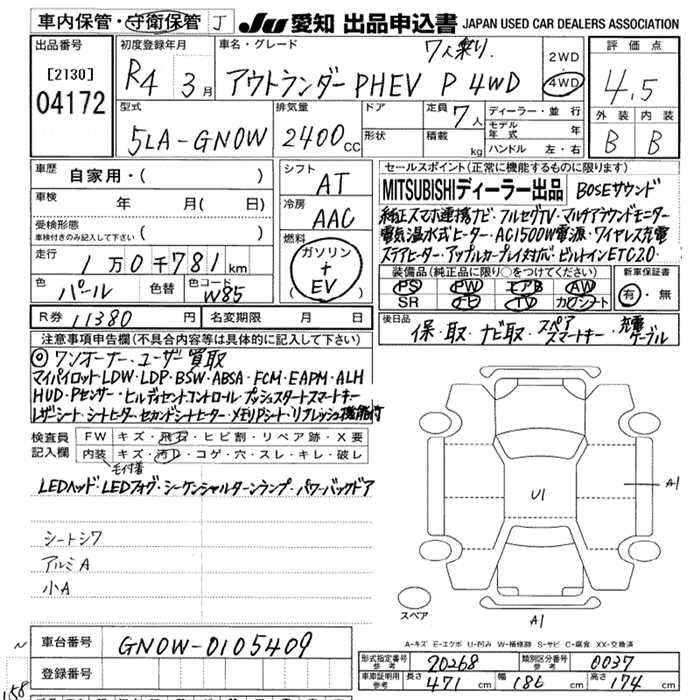 車内保管・守衛保管 J JU 愛知 出品申込書 JAPAN USED CAR DEALERS ASSOCIATION
出品番号 [2130] 04172
初度登録年月 R4 3月
車名・グレード 7人乗り. アウトランダーPHEV P 4WD
2WD 4WD
評価点 4.5
外装 B 内装 B
型式 5LA-GN0W
排気量 2400cc
ドア 形状
定員 7人 積載 kg
ディーラー・並行
モデル年式 年
ハンドル 左・右
車歴 自家用・( )
車検 年 月( 日)
受検形態 車検付きのみ記入して下さい ( )
走行 1万0千781km
色 パール 色替 色コード W85
シフト AT
冷房 AAC
燃料 ガソリン+EV
セールスポイント(正常に機能するものに限ります)
MITSUBISHIディーラー出品 BOSEサウンド
純正スマホ連携ナビ・フルセグTV・マルチアラウンドモニター
電気温水式ヒーター・AC1500W電源・ワイヤレス充電
ステアヒーター・アップルカープレイ対応・ビルトインETC2.0
装備品(純正品に限り○をつけてください)
PS PW エアB AW
SR ナビ TV カワシート
新車保証書 有・無
R券 11380 円 名変期限 月 日
後日品 保・取・ナビ取・スペアスマートキー・充電ケーブル
注意事項申告欄(不具合内容等は具体的に記入して下さい)
◎ワンオーナー・ユーザー買取
マイパイロット・LDW・LDP・BSW・ABSA・FCM・EAPM・ALH
HUD・Pセンサー・ヒルディセントコントロール・プッシュスタートスマートキー
レザーシート・シートヒーター・セカンドシートヒーター・メモリPシート・リフレッシュ機能付
検査員記入欄
FW キズ・飛石・ヒビ割・リペア跡・X要
内装 キズ・汚レ・コゲ・穴・スレ・キレ・破レ
毛付着
LEDヘッド・LEDフォグ・シーケンシャルターンランプ・パワーバックドア
シートシワ
アルミA
小A
U1
A1
A1
スペア
A-キズ E-エクボ U-凹み W-補修跡 S-サビ C-腐食 XX-交換済
車台番号 GN0W-0105409
登録番号
形式指定番号 参考 20268 類別区分番号 参考 0037
車庫証明用 参考 長さ 471cm 幅 186cm 高さ 174cm
158